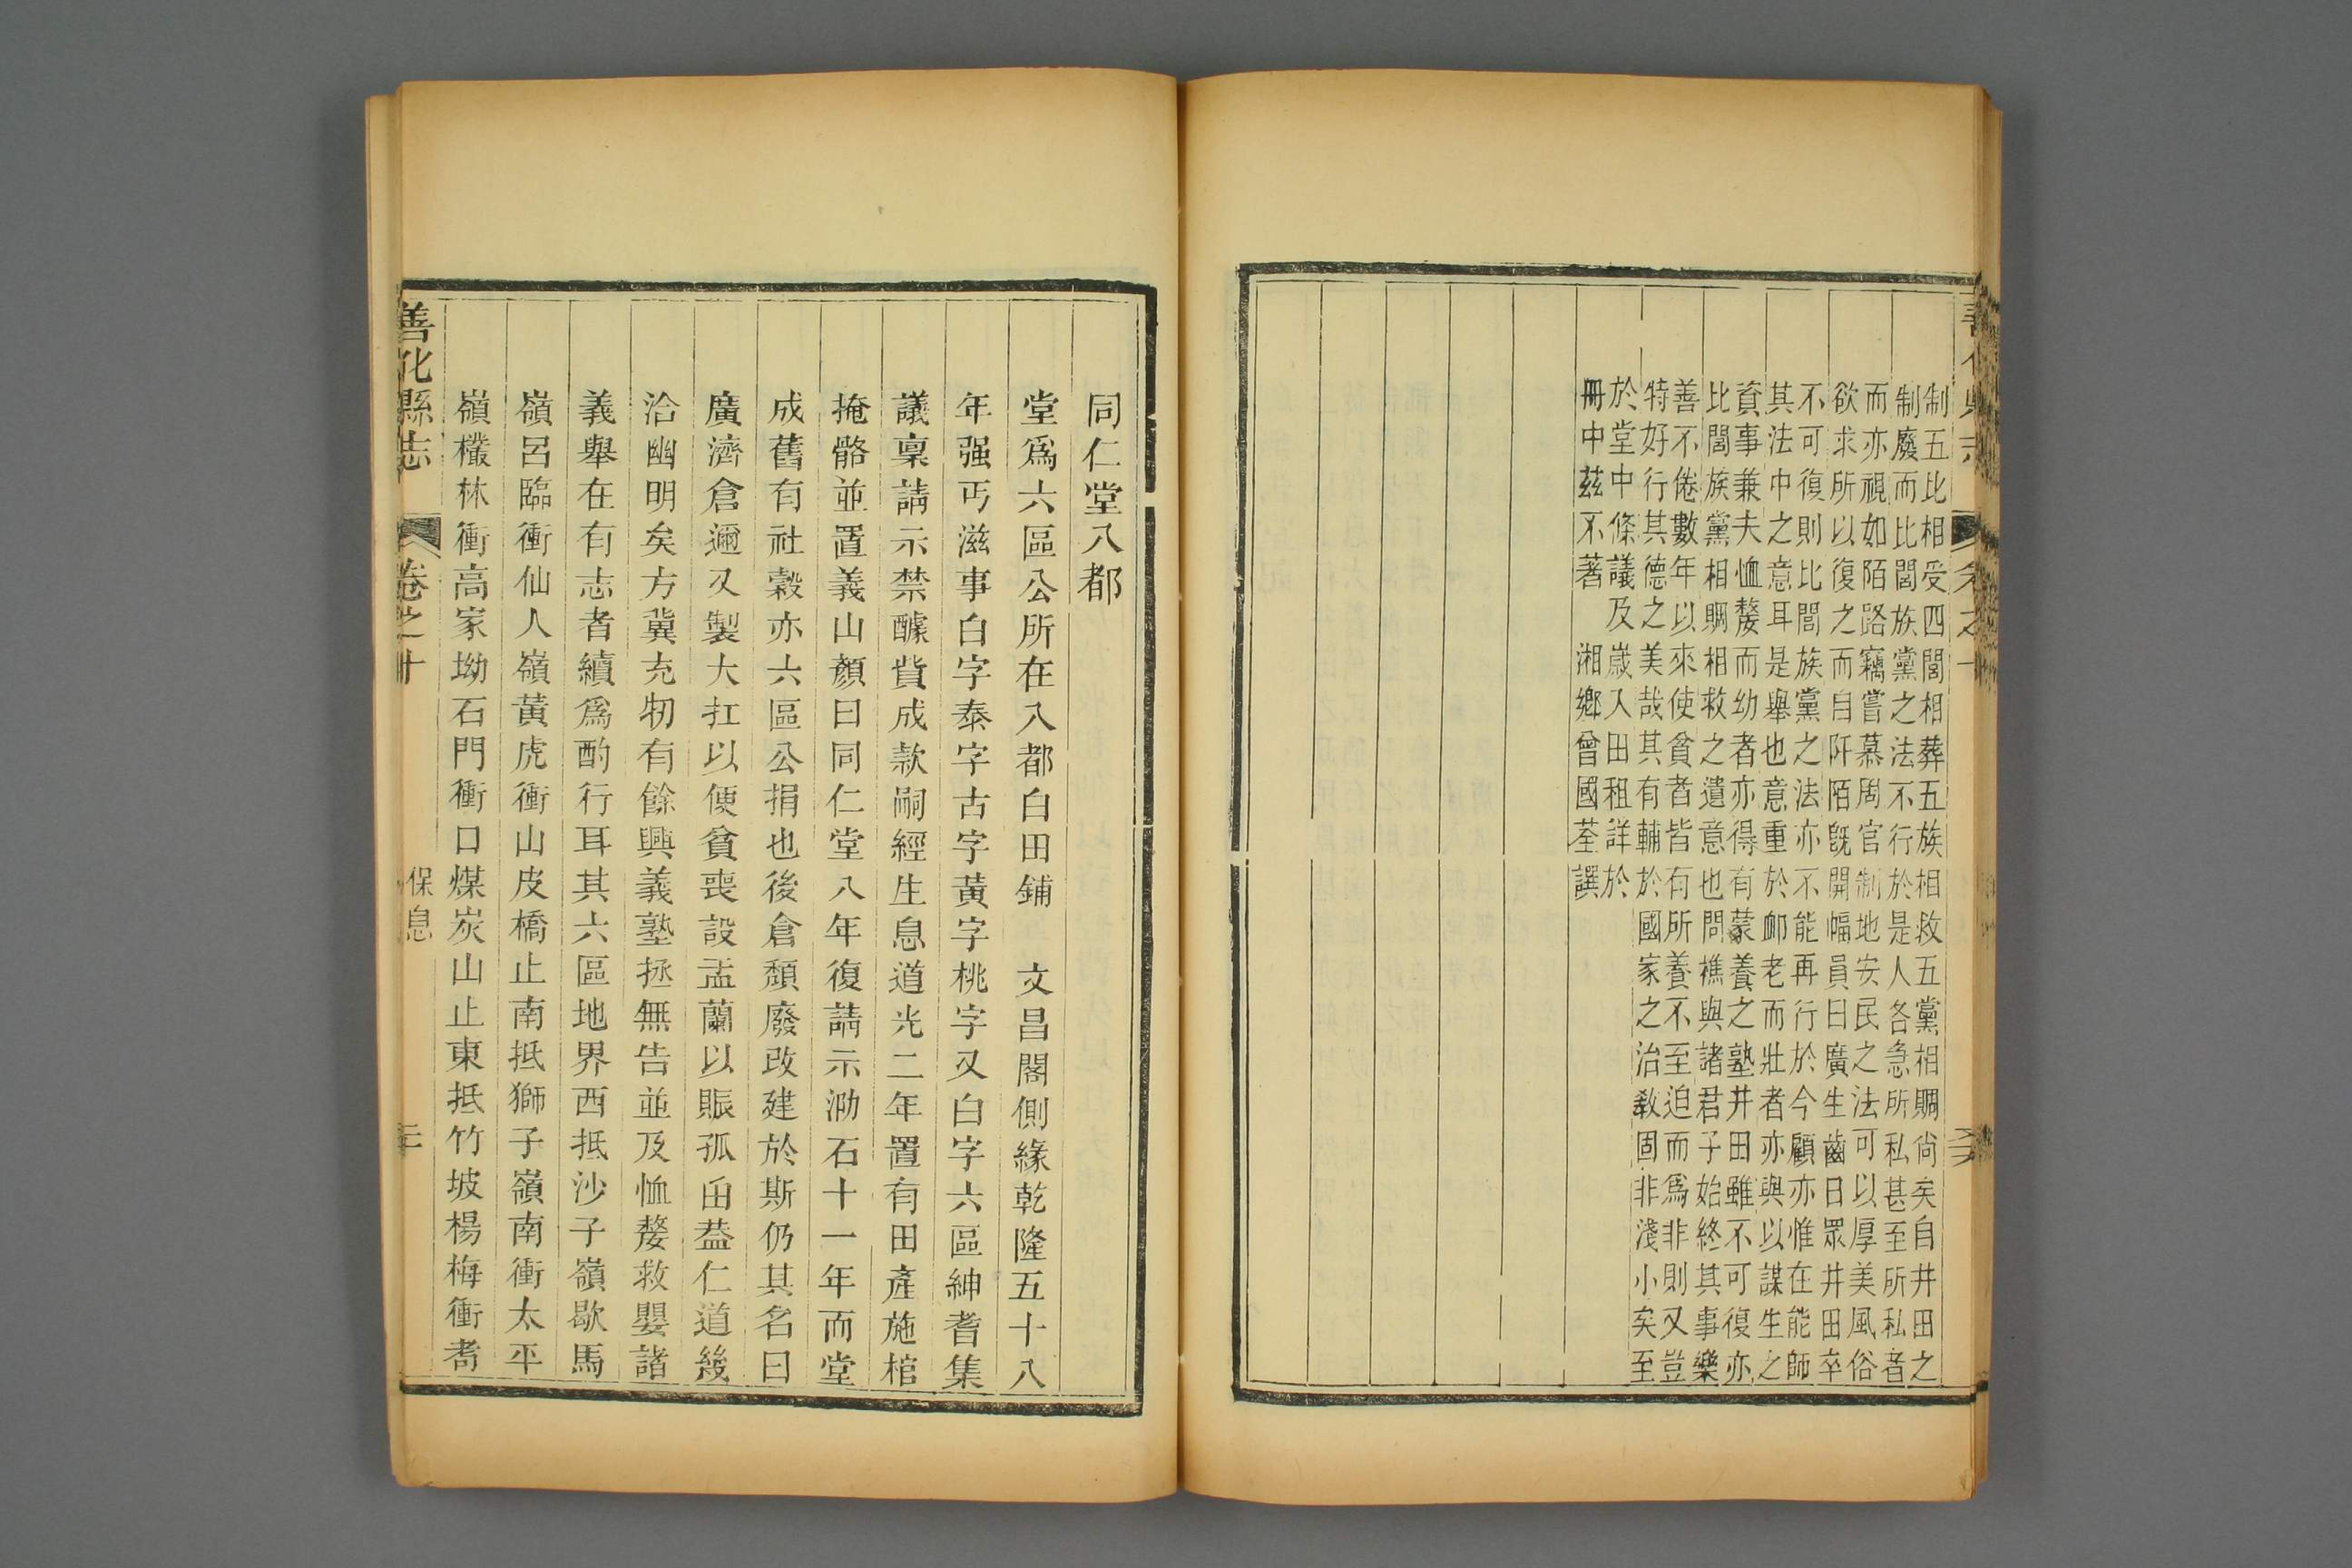 制五比相受四閭相葬五族相救五黨相賙尙矣自井田之
制廢而比閭族黨之法不行於是人各急所私甚至所私者
而亦視如陌路竊嘗慕周官制地安民之法可以厚美風俗
欲求所以復之而自阡陌旣開幅員日廣生齒日眾井田卒
不可復則比閭族黨之法亦不能再行於今顧亦惟在能師
其法中之意耳是舉也意重於䘏老而壯者亦與以謀生之
資事兼夫恤嫠而幼者亦得有蒙養之塾井田雖不可復亦
比閭族黨相賙相救之遺意也問樵與諸君子始終其事樂
善不倦數年以來使貧者皆有所養不至迫而爲非則又豈
特好行其德之美哉其有輔於國家之治教固非淺小矣至
於堂中條議及歲入田租詳於
冊中兹不著　湘鄉曾國荃譔
同仁堂八都
堂爲六區公所在八都白田鋪　文昌閣側緣乾隆五十八
年强丐滋事白字泰字古字黃字桃字又白字六區紳耆集
議稟請示禁醵貲成款嗣經生息道光二年置有田產施棺
掩骼並置義山顏曰同仁堂八年復請示泐石十一年而堂
成舊有社穀亦六區公捐也後倉頹廢改建於斯仍其名曰
廣濟倉邇又製大扛以便貧喪設盂蘭以賑孤由葢仁道幾
洽幽明矣方冀充牣有餘興義塾拯無告並及恤嫠救嬰諸
義舉在有志者續爲酌行耳其六區地界西抵沙子嶺歇馬
嶺呂臨衝仙人嶺黃虎衝山皮橋止南抵獅子嶺南衝太平
嶺欉林衝高家坳石門衝口煤炭山止東抵竹坡楊梅衝耈
善化縣志　卷之十　保息